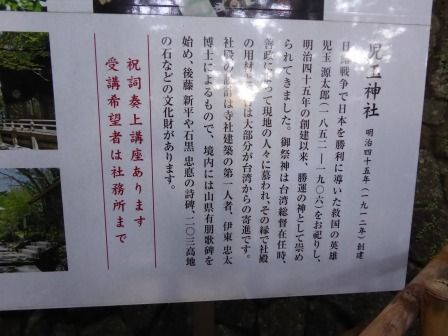 児玉神社 明治四十五年(一九一二年)創建
日露戦争で日本を勝利に導いた救国の英雄
児玉 源太郎(一八五二―一九〇六)をお祀りし、
明治四十五年の創建以来、勝運の神として崇め
られてきました。御祭神は台湾総督在任時、
善政によって現地の人々に慕われ、その縁で社殿
の用材は大部分が台湾からの寄進です。
社殿の設計は寺社建築の第一人者、伊東 忠太
博士によるもので、境内には山県有朋歌碑を
始め、後藤 新平や石黒 忠悳の詩碑、二〇三高地
の石などの文化財があります。
祝詞奏上講座あります
受講希望者は社務所まで